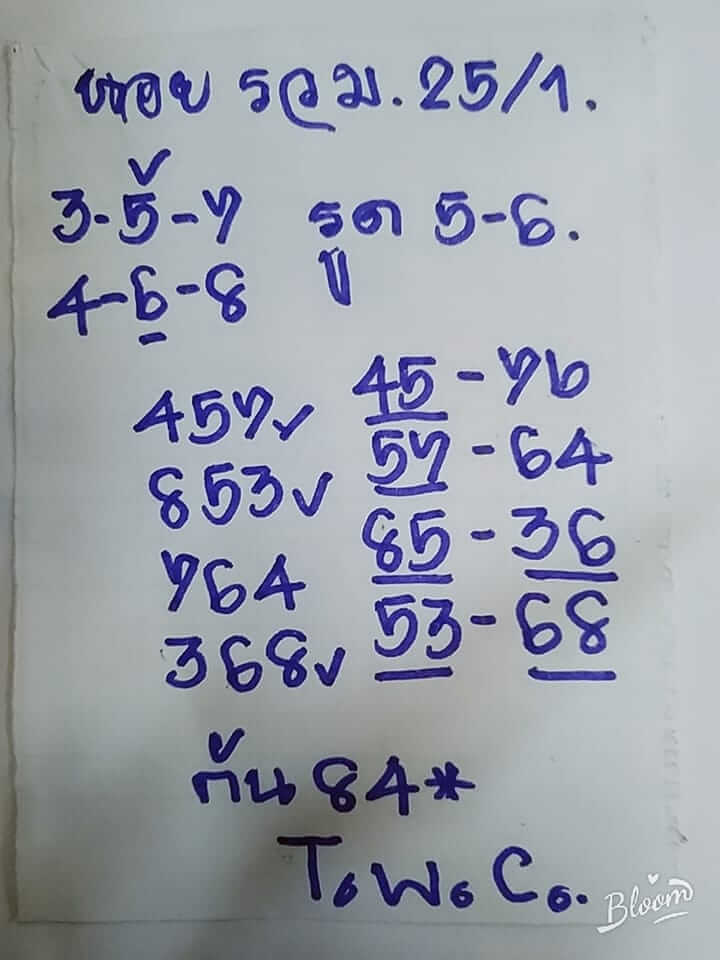 หอย รวม. 25/1.
3-5-7 รูด 5-6.
4-6-8
457✓ 45-76
853✓ 57-64
764 85-36
368✓ 53-68
กัน 84*
T.พ.C.
Bloom